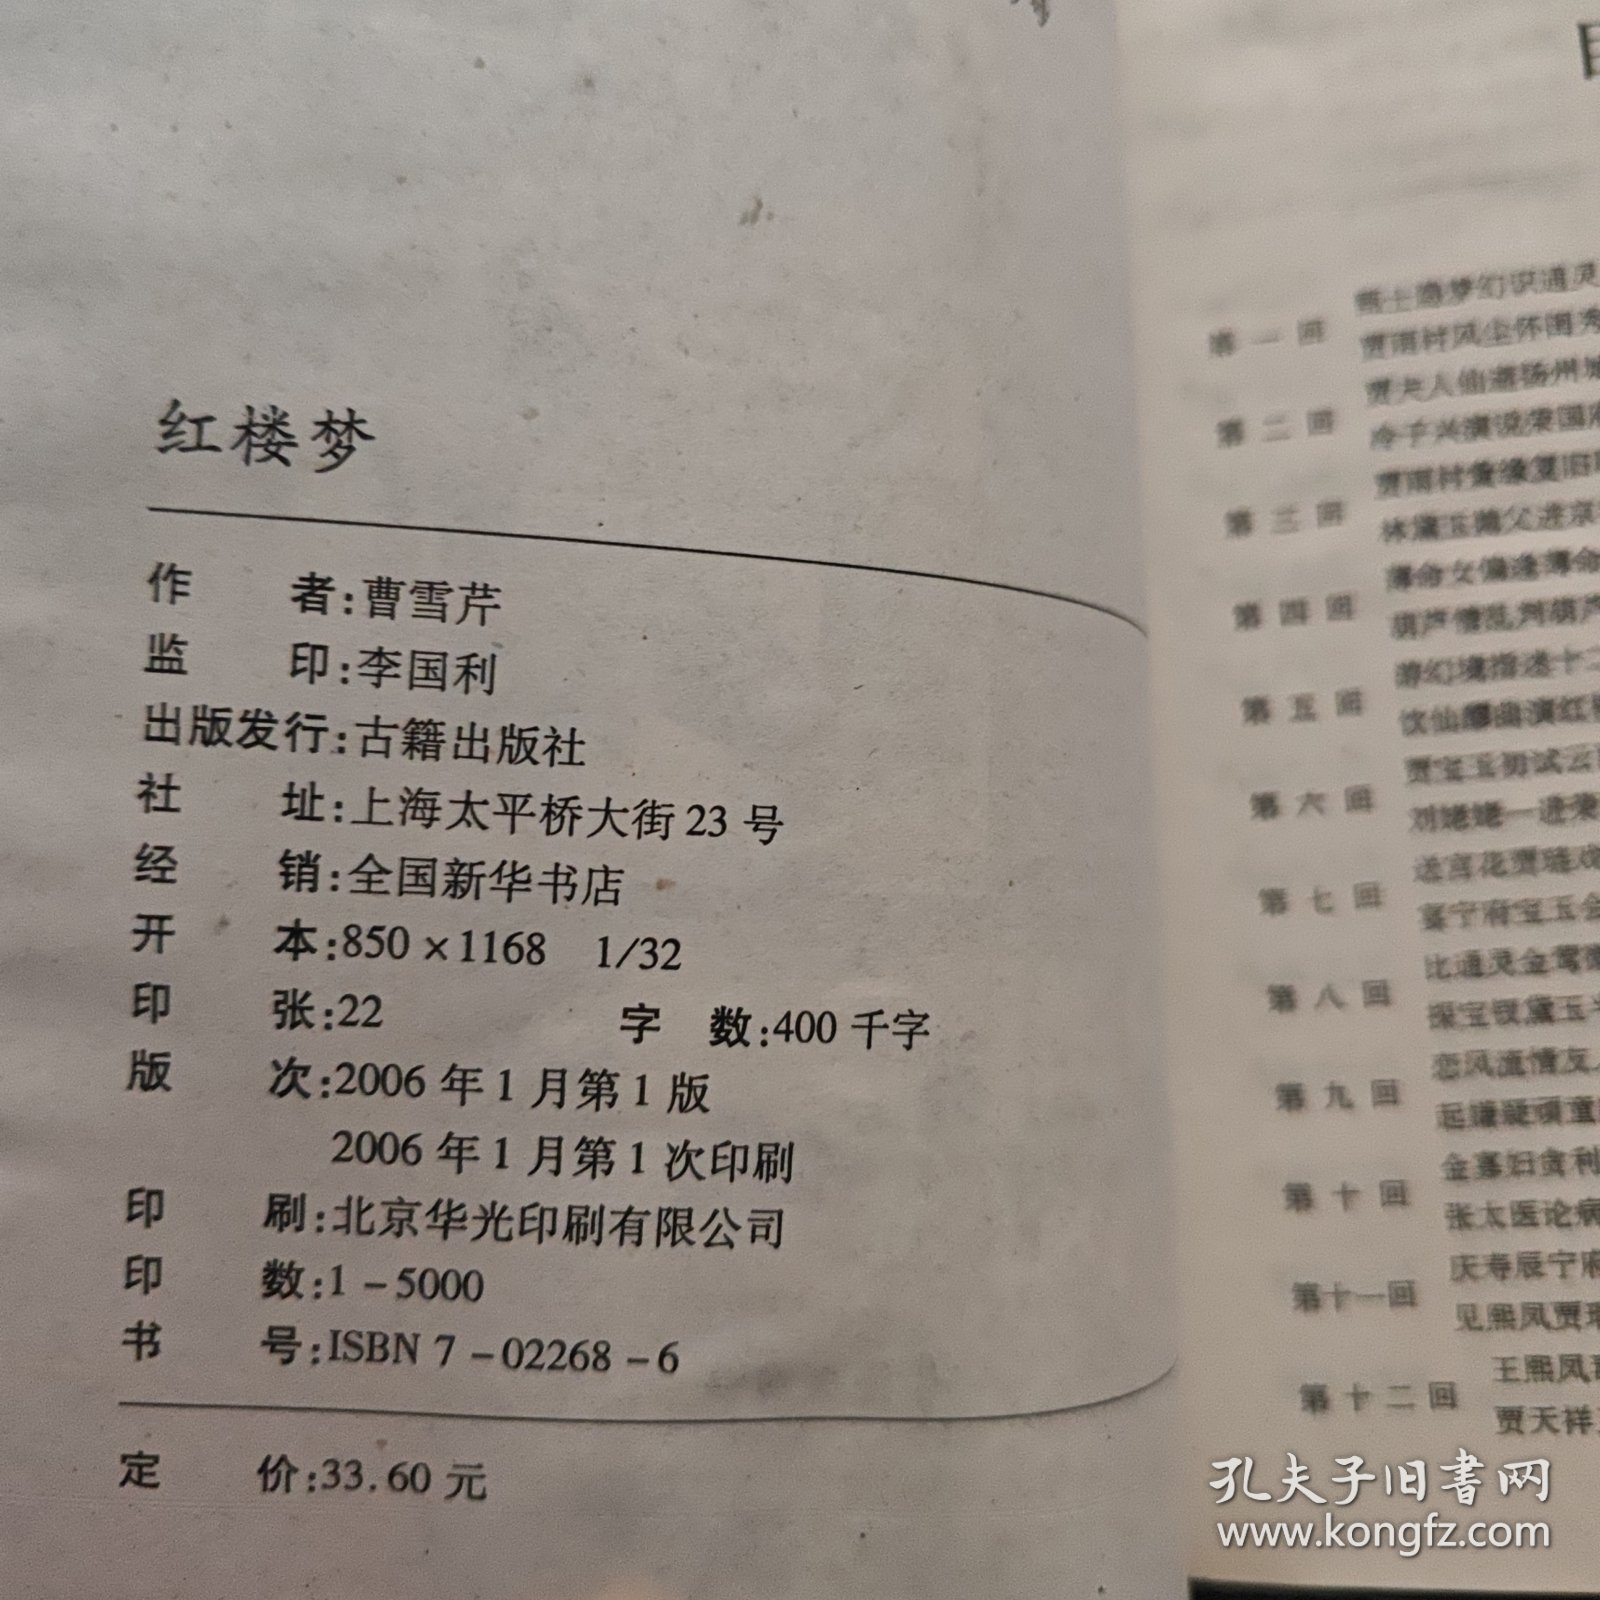 红楼梦
作者:曹雪芹
监印:李国利
出版发行:古籍出版社
社址:上海太平桥大街23号
经销:全国新华书店
开本:850×1168 1/32
印张:22 字数:400千字
版次:2006年1月第1版
2006年1月第1次印刷
印刷:北京华光印刷有限公司
印数:1-5000
书号:ISBN 7-02268-6
定价:33.60元
第一回
甄士隐梦幻识通灵
贾雨村风尘怀闺秀
第二回
贾夫人仙逝扬州城
冷子兴演说荣国府
第三回
贾雨村夤缘复旧职
林黛玉抛父进京
第四回
薄命女偏逢薄命
葫芦僧乱判葫芦
第五回
游幻境指迷十二
饮仙醪曲演红
第六回
贾宝玉初试云
刘姥姥一进荣
第七回
送宫花贾琏戏
宴宁府宝玉会
第八回
比通灵金莺微
探宝钗黛玉半
第九回
恋风流情友
起嫌疑顽童
第十回
金寡妇贪利
张太医论病
第十一回
庆寿辰宁府
见熙凤贾瑞
第十二回
王熙凤
贾天祥
孔夫子旧书网
www.kongfz.com